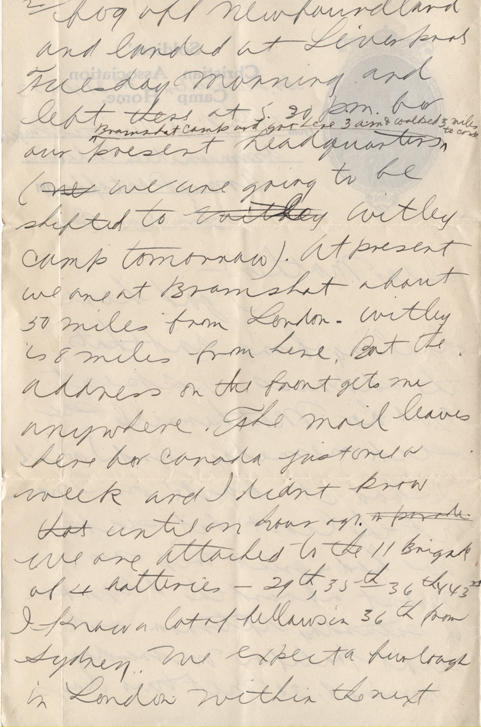 fog off Newfoundland
and landed at Liverpool
Tuesday morning and
left there at 5.20 pm. for
Bramshot Camp and got here 3 am & walked 3 miles to camp
our present headquarters
(we are going to be
shifted to Witley
camp tomorrow). At present
we are at Bramshot about
50 miles from London - Witley
is 8 miles from here. But the
address on the front gets me
anywhere. The mail leaves
here for Canada just once a
week and I didn't know
that until an hour ago.
We are attached to the 11 Brigade
of 4 batteries - 29th, 35th 36th & 43rd
I know a lot of fellows in 36th from
Sydney. We expect a furlough
in London within the next
Christian Association
Camp Home.